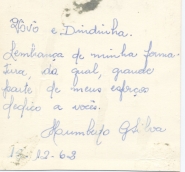 Vovô e Dindinha.
Lembrança de minha forma-
tura, da qual, grande
parte de meus esforços
dedico a vocês.
G Silva
12-63